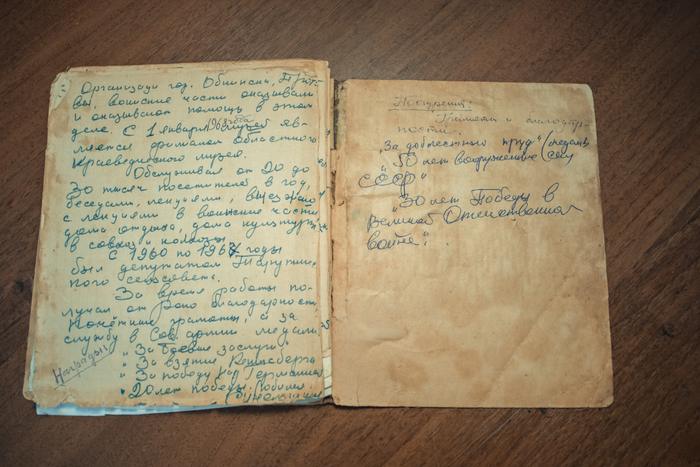 Организаци гор. Обнинска, Прот-
вы, воинские части оказывали
и оказывают помощь в этом
деле. С 1 января 1968 года музей яв-
ляется филиалом областного
краеведческого музея.
Обслуживал от 20 до
30 тысяч посетителей в год,
беседами, лекциями, выезжаю
с лекциями в воинские части
дома отдыха, дома культуры
в совхоз и колхозы.
С 1960 по 1967 годы
был депутатом Тарутин-
ского сельсовета.
За время работы по-
лучал от благодарность
Почётные грамоты, а за
службу в Сов. армии медали
"За боевые заслуги"
"За взятие Кенигсберга
"За победу над Германией
"20 лет победы.
Награды
Поощрения:
Грамоты и благодар-
ности.
"За доблестный труд" (медаль
"50 лет вооруженных сил
СССР"
"30 лет Победы в
Великой Отечественной
войне".